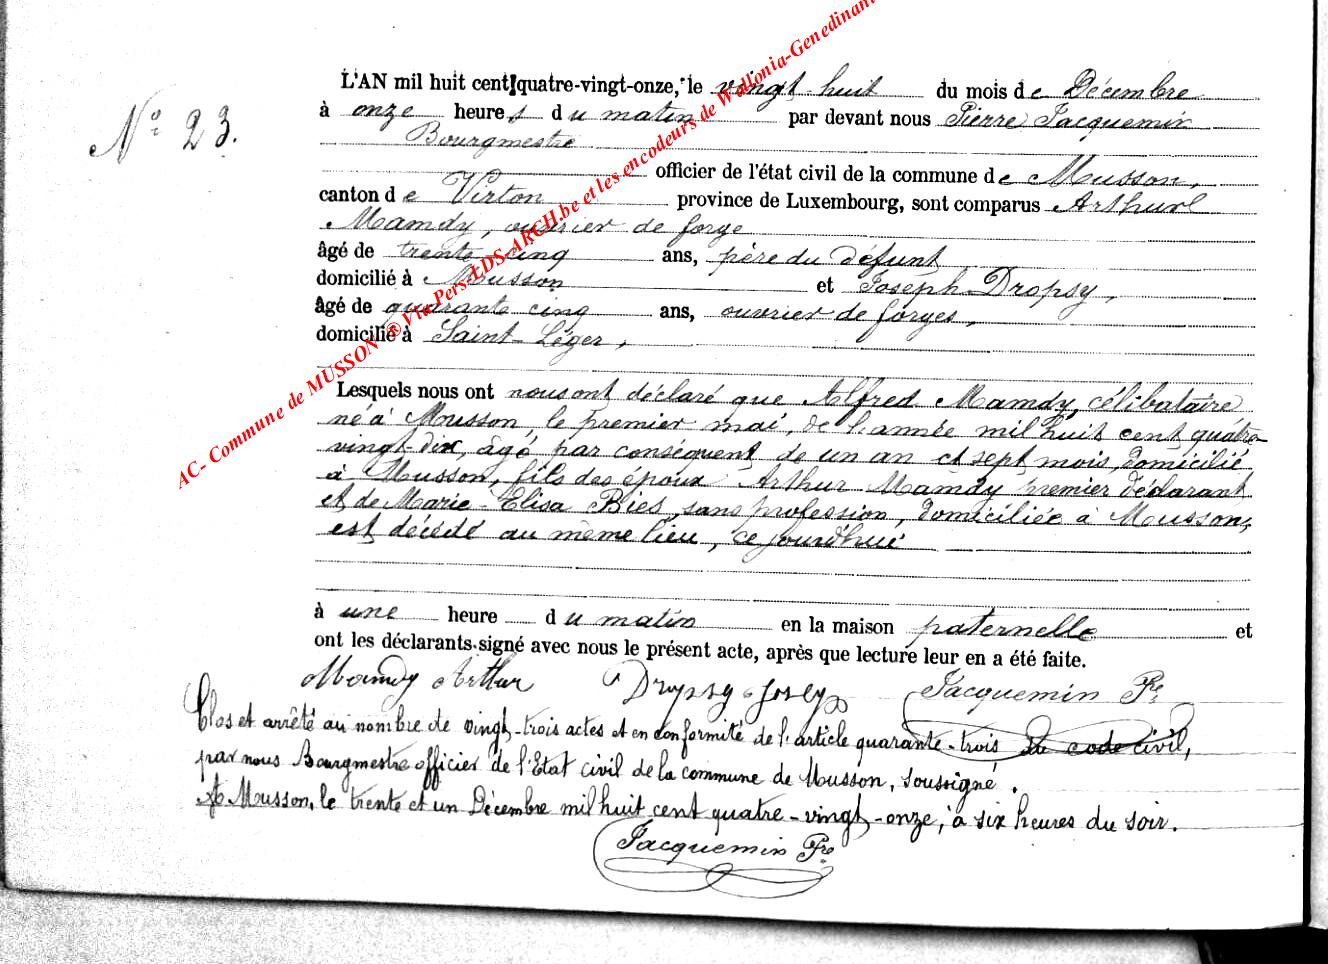 L'AN mil huit cent quatre-vingt-onze, le vingt huit du mois de Décembre
N° 23.
à onze heures du matin par devant nous Pierre Jacquemin
Bourgmestre
officier de l'état civil de la commune de Musson,
canton de Virton province de Luxembourg, sont comparus Arthur
Mamdy, ouvrier de forge
âgé de trente cinq ans, père du défunt
domicilié à Musson et Joseph Dropsy,
âgé de quarante cinq ans, ouvrier de forges,
domicilié à Saint-Léger,
Lesquels nous ont nous ont déclaré que Alfred Mamdy, célibataire
né à Musson, le premier mai, de l'année mil huit cent quatre-
vingt-dix, âgé par conséquent de un an et sept mois, domicilié
à Musson, fils des époux Arthur Mamdy premier déclarant
et de Marie-Elisa Bies, sans profession, domiciliée à Musson,
est décédé au même lieu, ce jourd'hui
à une heure du matin en la maison paternelle et
ont les déclarants signé avec nous le présent acte, après que lecture leur en a été faite.
Mamdy Arthur Dropsy Joseph Jacquemin Pre
Clos et arrêté au nombre de vingt-trois actes et en conformité de l'article quarante-trois du code civil,
par nous Bourgmestre officier de l'Etat civil de la commune de Musson, soussigné.
A Musson, le trente et un Décembre mil huit cent quatre-vingt-onze, à six heures du soir.
Jacquemin Pre
AC- Commune de MUSSON ® Via Pers-LDS-ARCH.be et les encodeurs de Wallonia-Genedinant